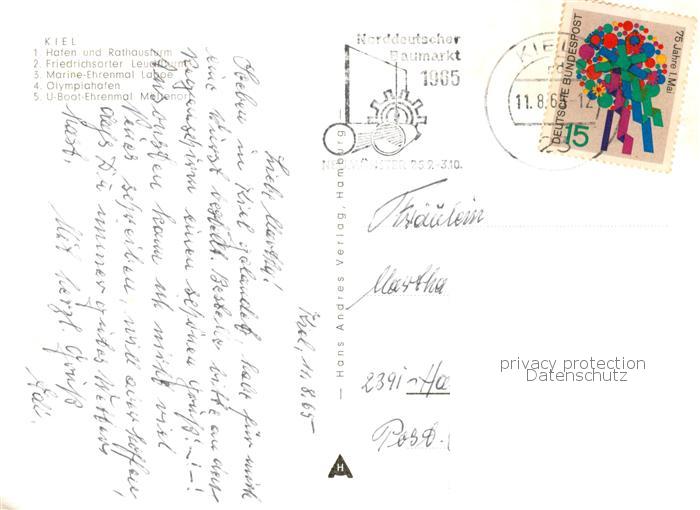 KIEL
1 Hafen und Rathausturm
2. Friedrichsorter Leuchtturm
3. Marine-Ehrenmal Laboe
4. Olympiahafen
5. U-Boot-Ehrenmal Möltenort
Norddeutscher
Baumarkt
1965
NEUMÜNSTER 25.9.-3.10.
KIEL
11.8.65-12
DEUTSCHE BUNDESPOST
75 Jahre 1. Mai
15
Kiel, 11.8.65
Liebe Martha!
Haben in Kiel gelandet, habe für mich
eine Kunst bestellt. Bestelle bitte an den
Regenschirm einen schönen Gruß! -!-!
Ansonsten kann ich nicht viel
Neues schreiben, will aber hoffen,
dass Du immer gutes Wetter
hast.
Mit herzl. Gruß
— Hans Andres Verlag, Hamburg
H
Fräulein
Martha
2391 - Ha
Post-
privacy protection
Datenschutz